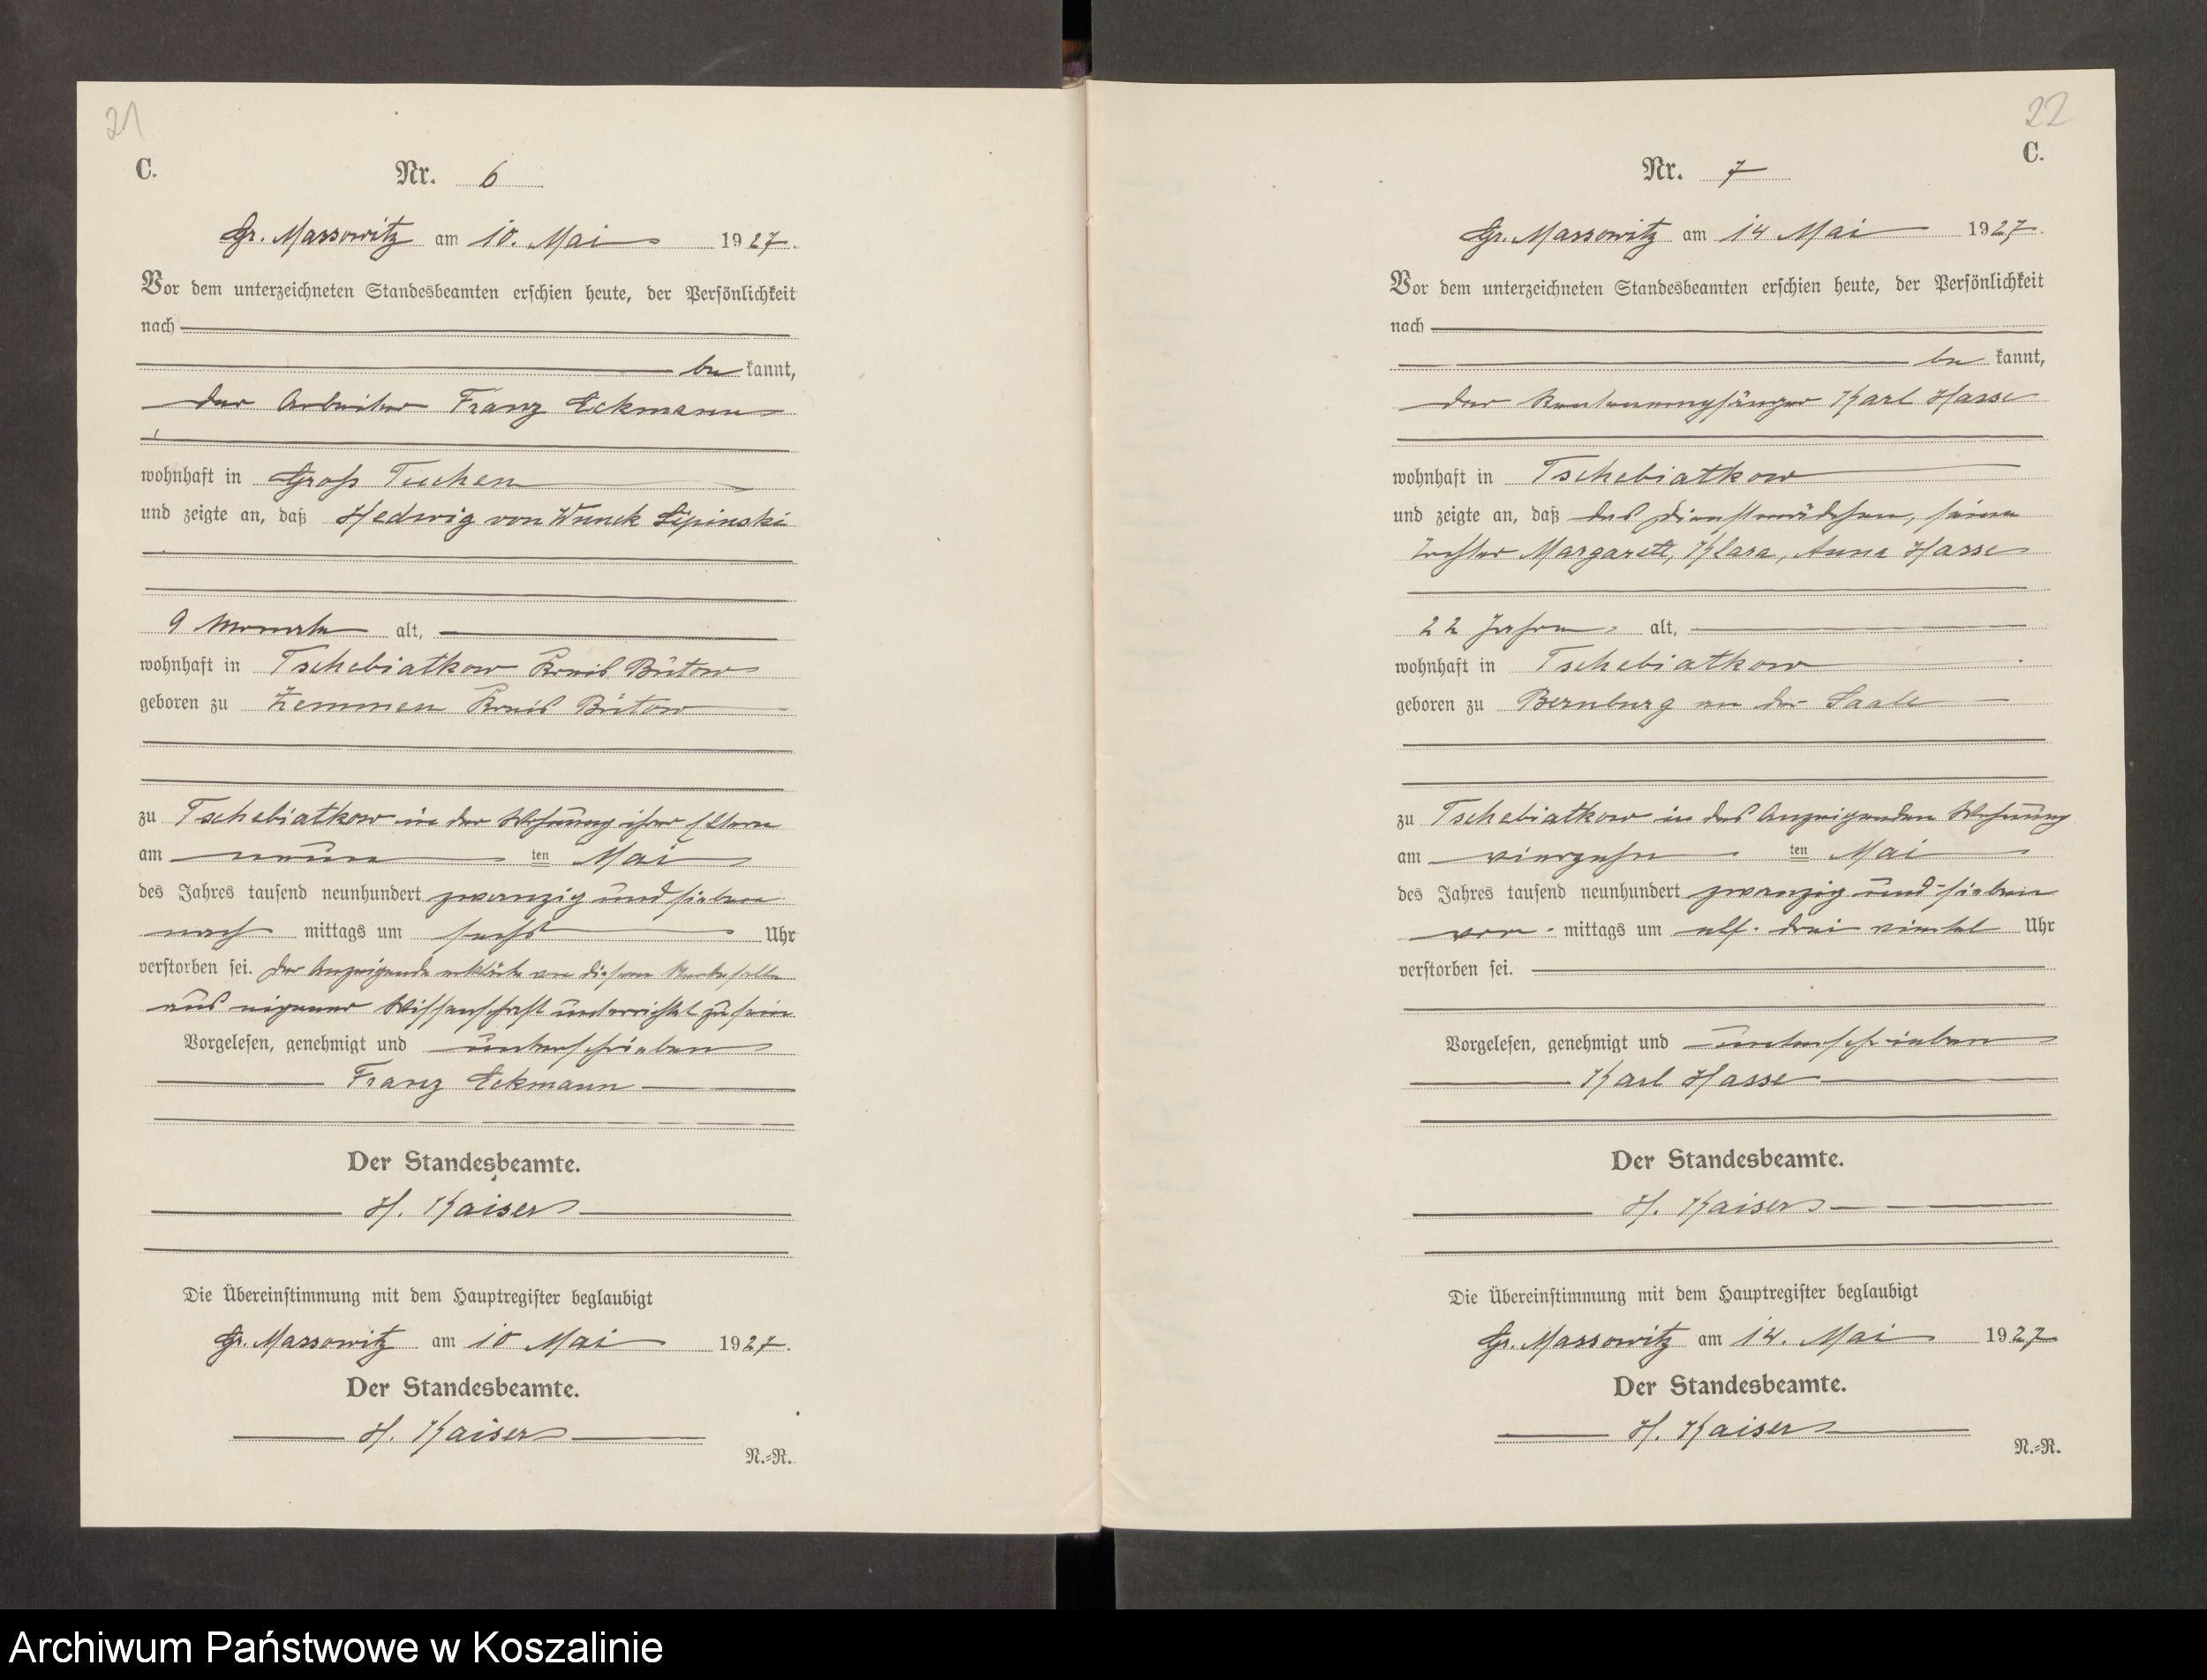 21
C.
Nr. 6
Gr. Massowitz am 10. Mai 1927.
Vor dem unterzeichneten Standesbeamten erschien heute, der Persönlichkeit
nach
be kannt,
der Arbeiter Franz Eckmann
wohnhaft in Groß Tuchen
und zeigte an, daß Hedwig von Wnuck Lipinski
9 Monate alt,
wohnhaft in Tschebiatkow Kreis Bütow
geboren zu Zemmen Kreis Bütow
zu Tschebiatkow in der Wohnung ihrer Eltern
am neun ten Mai
des Jahres tausend neunhundert zwanzig und sieben
nach mittags um sechs Uhr
verstorben sei. Der Anzeigende erklärte von diesem Sterbefalle
aus eigener Wissenschaft unterrichtet zu sein
Vorgelesen, genehmigt und unterschrieben
Franz Eckmann
Der Standesbeamte.
H. Kaiser
Die Übereinstimmung mit dem Hauptregister beglaubigt
Gr. Massowitz am 10 Mai 1927.
Der Standesbeamte.
H. Kaiser
N.=R.
22
C.
Nr. 7
Gr. Massowitz am 14 Mai 1927.
Vor dem unterzeichneten Standesbeamten erschien heute, der Persönlichkeit
nach
be kannt,
der Rentenempfänger Karl Hasse
wohnhaft in Tschebiatkow
und zeigte an, daß das Dienstmädchen, seine
Tochter Margarett, Klara, Anna Hasse
22 Jahren alt,
wohnhaft in Tschebiatkow
geboren zu Bernburg an der Saale
zu Tschebiatkow in des Anzeigenden Wohnung
am vierzehn ten Mai
des Jahres tausend neunhundert zwanzig und sieben
vor mittags um elf drei viertel Uhr
verstorben sei.
Vorgelesen, genehmigt und unterschrieben
Karl Hasse
Der Standesbeamte.
H. Kaiser
Die Übereinstimmung mit dem Hauptregister beglaubigt
Gr. Massowitz am 14. Mai 1927
Der Standesbeamte.
H. Kaiser
N.=R.
Archiwum Państwowe w Koszalinie